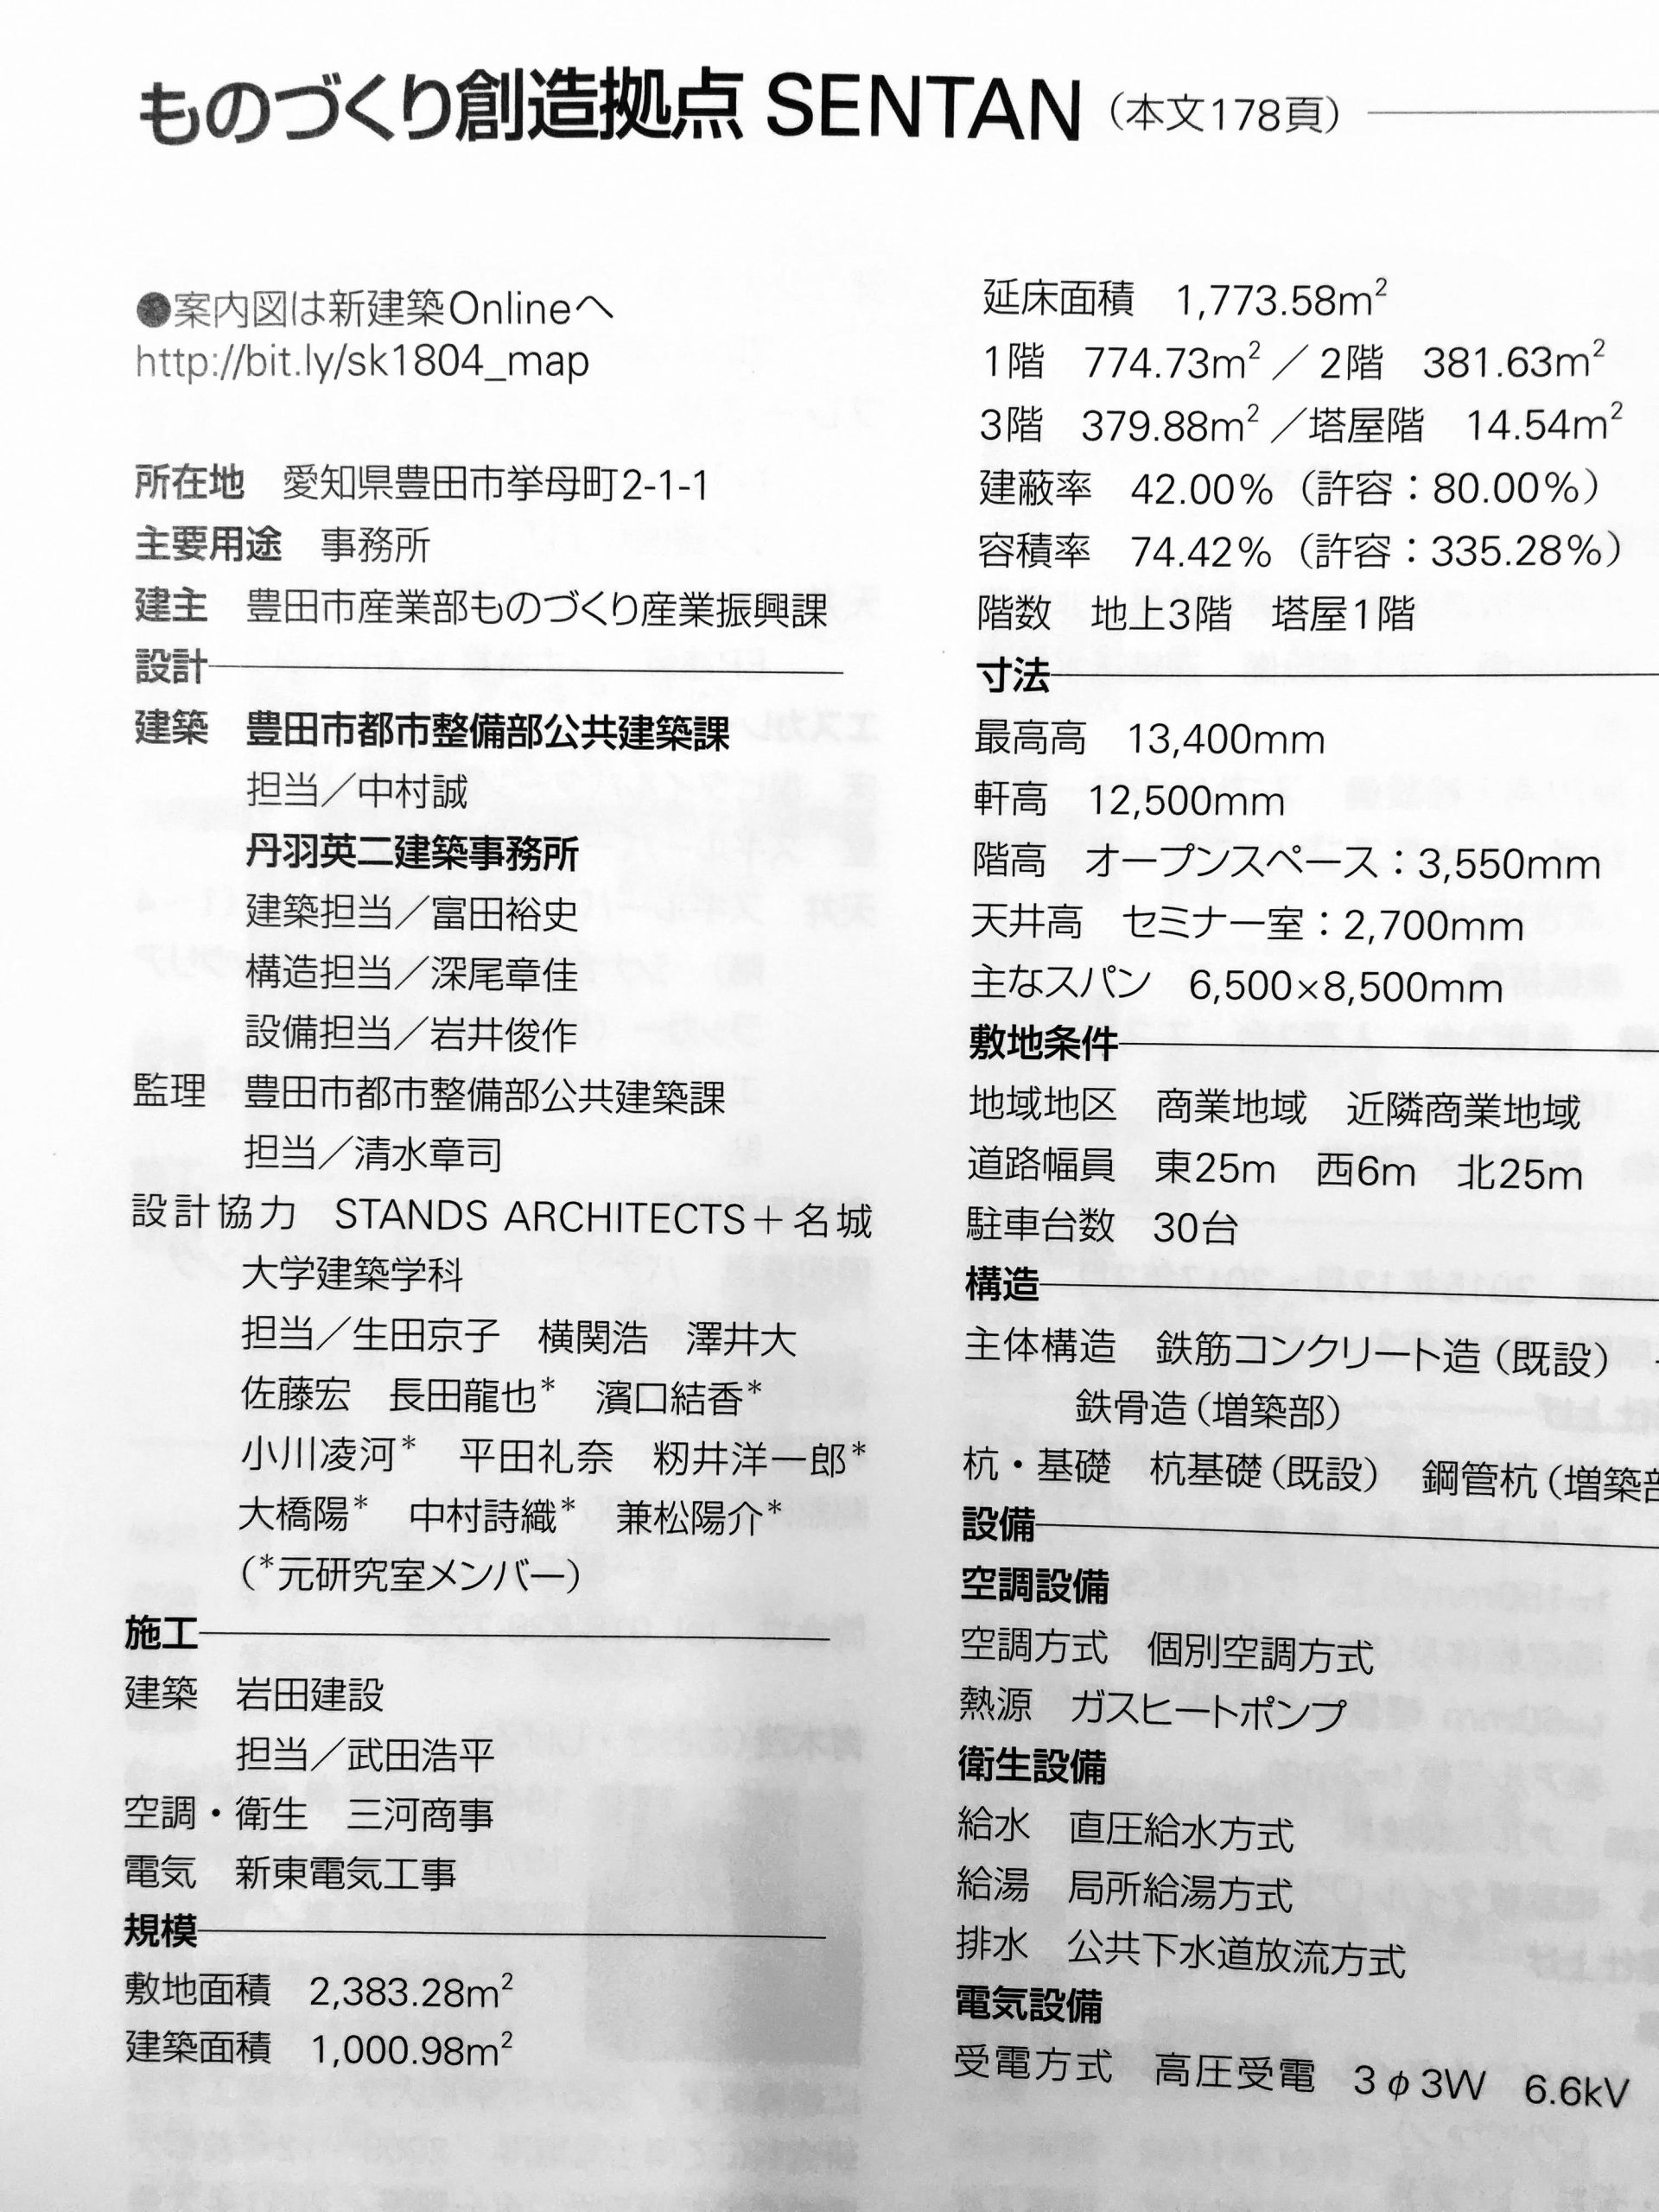 ものづくり創造拠点 SENTAN（本文178頁）
●案内図は新建築Onlineへ
http://bit.ly/sk1804_map
所在地　愛知県豊田市挙母町2-1-1
主要用途　事務所
建主　豊田市産業部ものづくり産業振興課
設計
建築　豊田市都市整備部公共建築課
担当／中村誠
丹羽英二建築事務所
建築担当／富田裕史
構造担当／深尾章佳
設備担当／岩井俊作
監理　豊田市都市整備部公共建築課
担当／清水章司
設計協力　STANDS ARCHITECTS＋名城
大学建築学科
担当／生田京子　横関浩　澤井大
佐藤宏　長田龍也*　濱口結香*
小川凌河*　平田礼奈　籾井洋一郎*
大橋陽*　中村詩織*　兼松陽介*
（*元研究室メンバー）
施工
建築　岩田建設
担当／武田浩平
空調・衛生　三河商事
電気　新東電気工事
規模
敷地面積　2,383.28m²
建築面積　1,000.98m²
延床面積　1,773.58m²
1階　774.73m²／2階　381.63m²
3階　379.88m²／塔屋階　14.54m²
建蔽率　42.00%（許容：80.00%）
容積率　74.42%（許容：335.28%）
階数　地上3階　塔屋1階
寸法
最高高　13,400mm
軒高　12,500mm
階高　オープンスペース：3,550mm
天井高　セミナー室：2,700mm
主なスパン　6,500×8,500mm
敷地条件
地域地区　商業地域　近隣商業地域
道路幅員　東25m　西6m　北25m
駐車台数　30台
構造
主体構造　鉄筋コンクリート造（既設）
鉄骨造（増築部）
杭・基礎　杭基礎（既設）　鋼管杭（増築部
設備
空調設備
空調方式　個別空調方式
熱源　ガスヒートポンプ
衛生設備
給水　直圧給水方式
給湯　局所給湯方式
排水　公共下水道放流方式
電気設備
受電方式　高圧受電　3φ3W　6.6kV